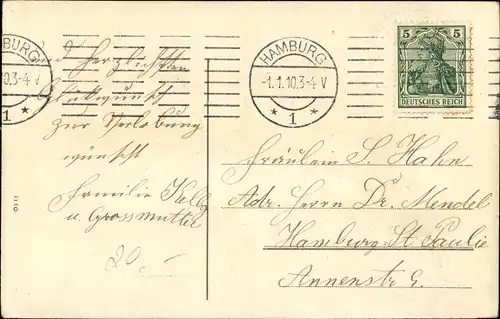 HAMBURG
-1.1.10.3-4 V
* 1 *
BURG
10.3-4 V
1 *
5 5
DEUTSCHES REICH
herzlichsten
Glückwunsch
zur Verlobung
wünscht
Familie
u. Grossmutter
20.-
Fräulein S. Hahn
Adr. Herrn Dr. Mendel
Hamburg-St Paulie
Annenstr